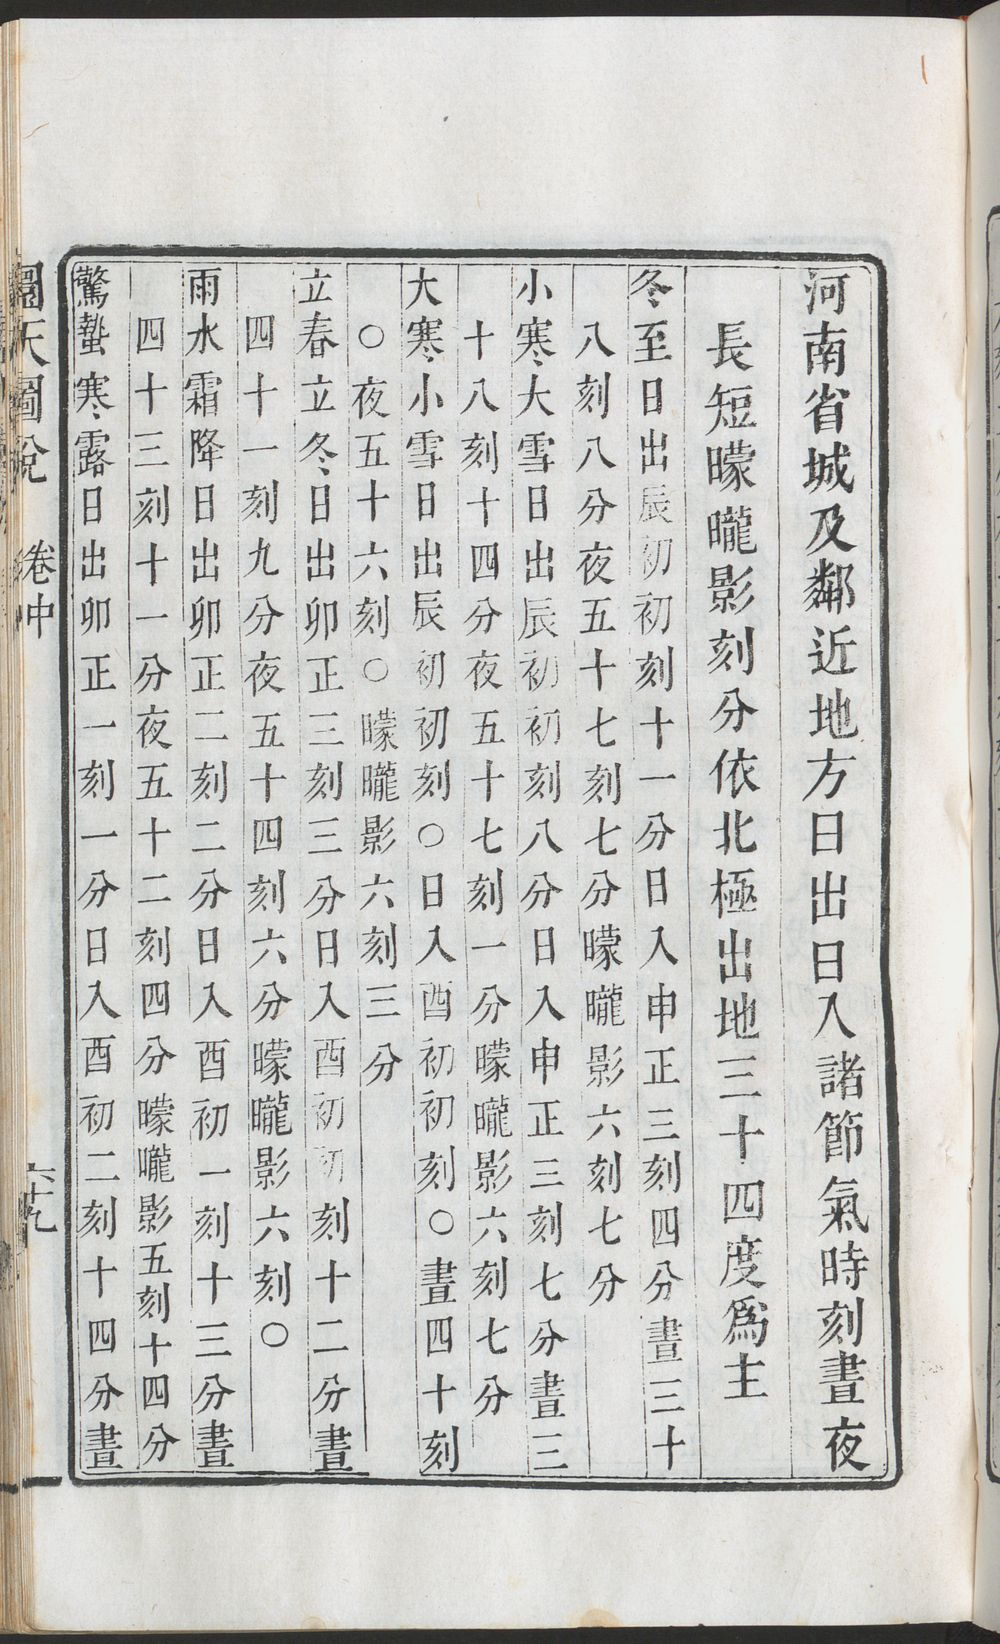 河南省城及鄰近地方日出日入諸節氣時刻晝夜
長短曚曨影刻分依北極出地三十四度為主
冬至日出辰初初刻十一分日入申正三刻四分晝三十
八刻八分夜五十七刻七分曚曨影六刻七分
小寒大雪日出辰初初刻八分日入申正三刻七分晝三
十八刻十四分夜五十七刻一分曚曨影六刻七分
大寒小雪日出辰初初刻〇日入酉初初刻〇晝四十刻
〇夜五十六刻〇曚曨影六刻三分
立春立冬日出卯正三刻三分日入酉初初刻十二分晝
四十一刻九分夜五十四刻六分曚曨影六刻〇
雨水霜降日出卯正二刻二分日入酉初一刻十三分晝
四十三刻十一分夜五十二刻四分曚曨影五刻十四分
驚蟄寒露日出卯正一刻一分日入酉初二刻十四分晝
圜天圖說 卷中 六十九